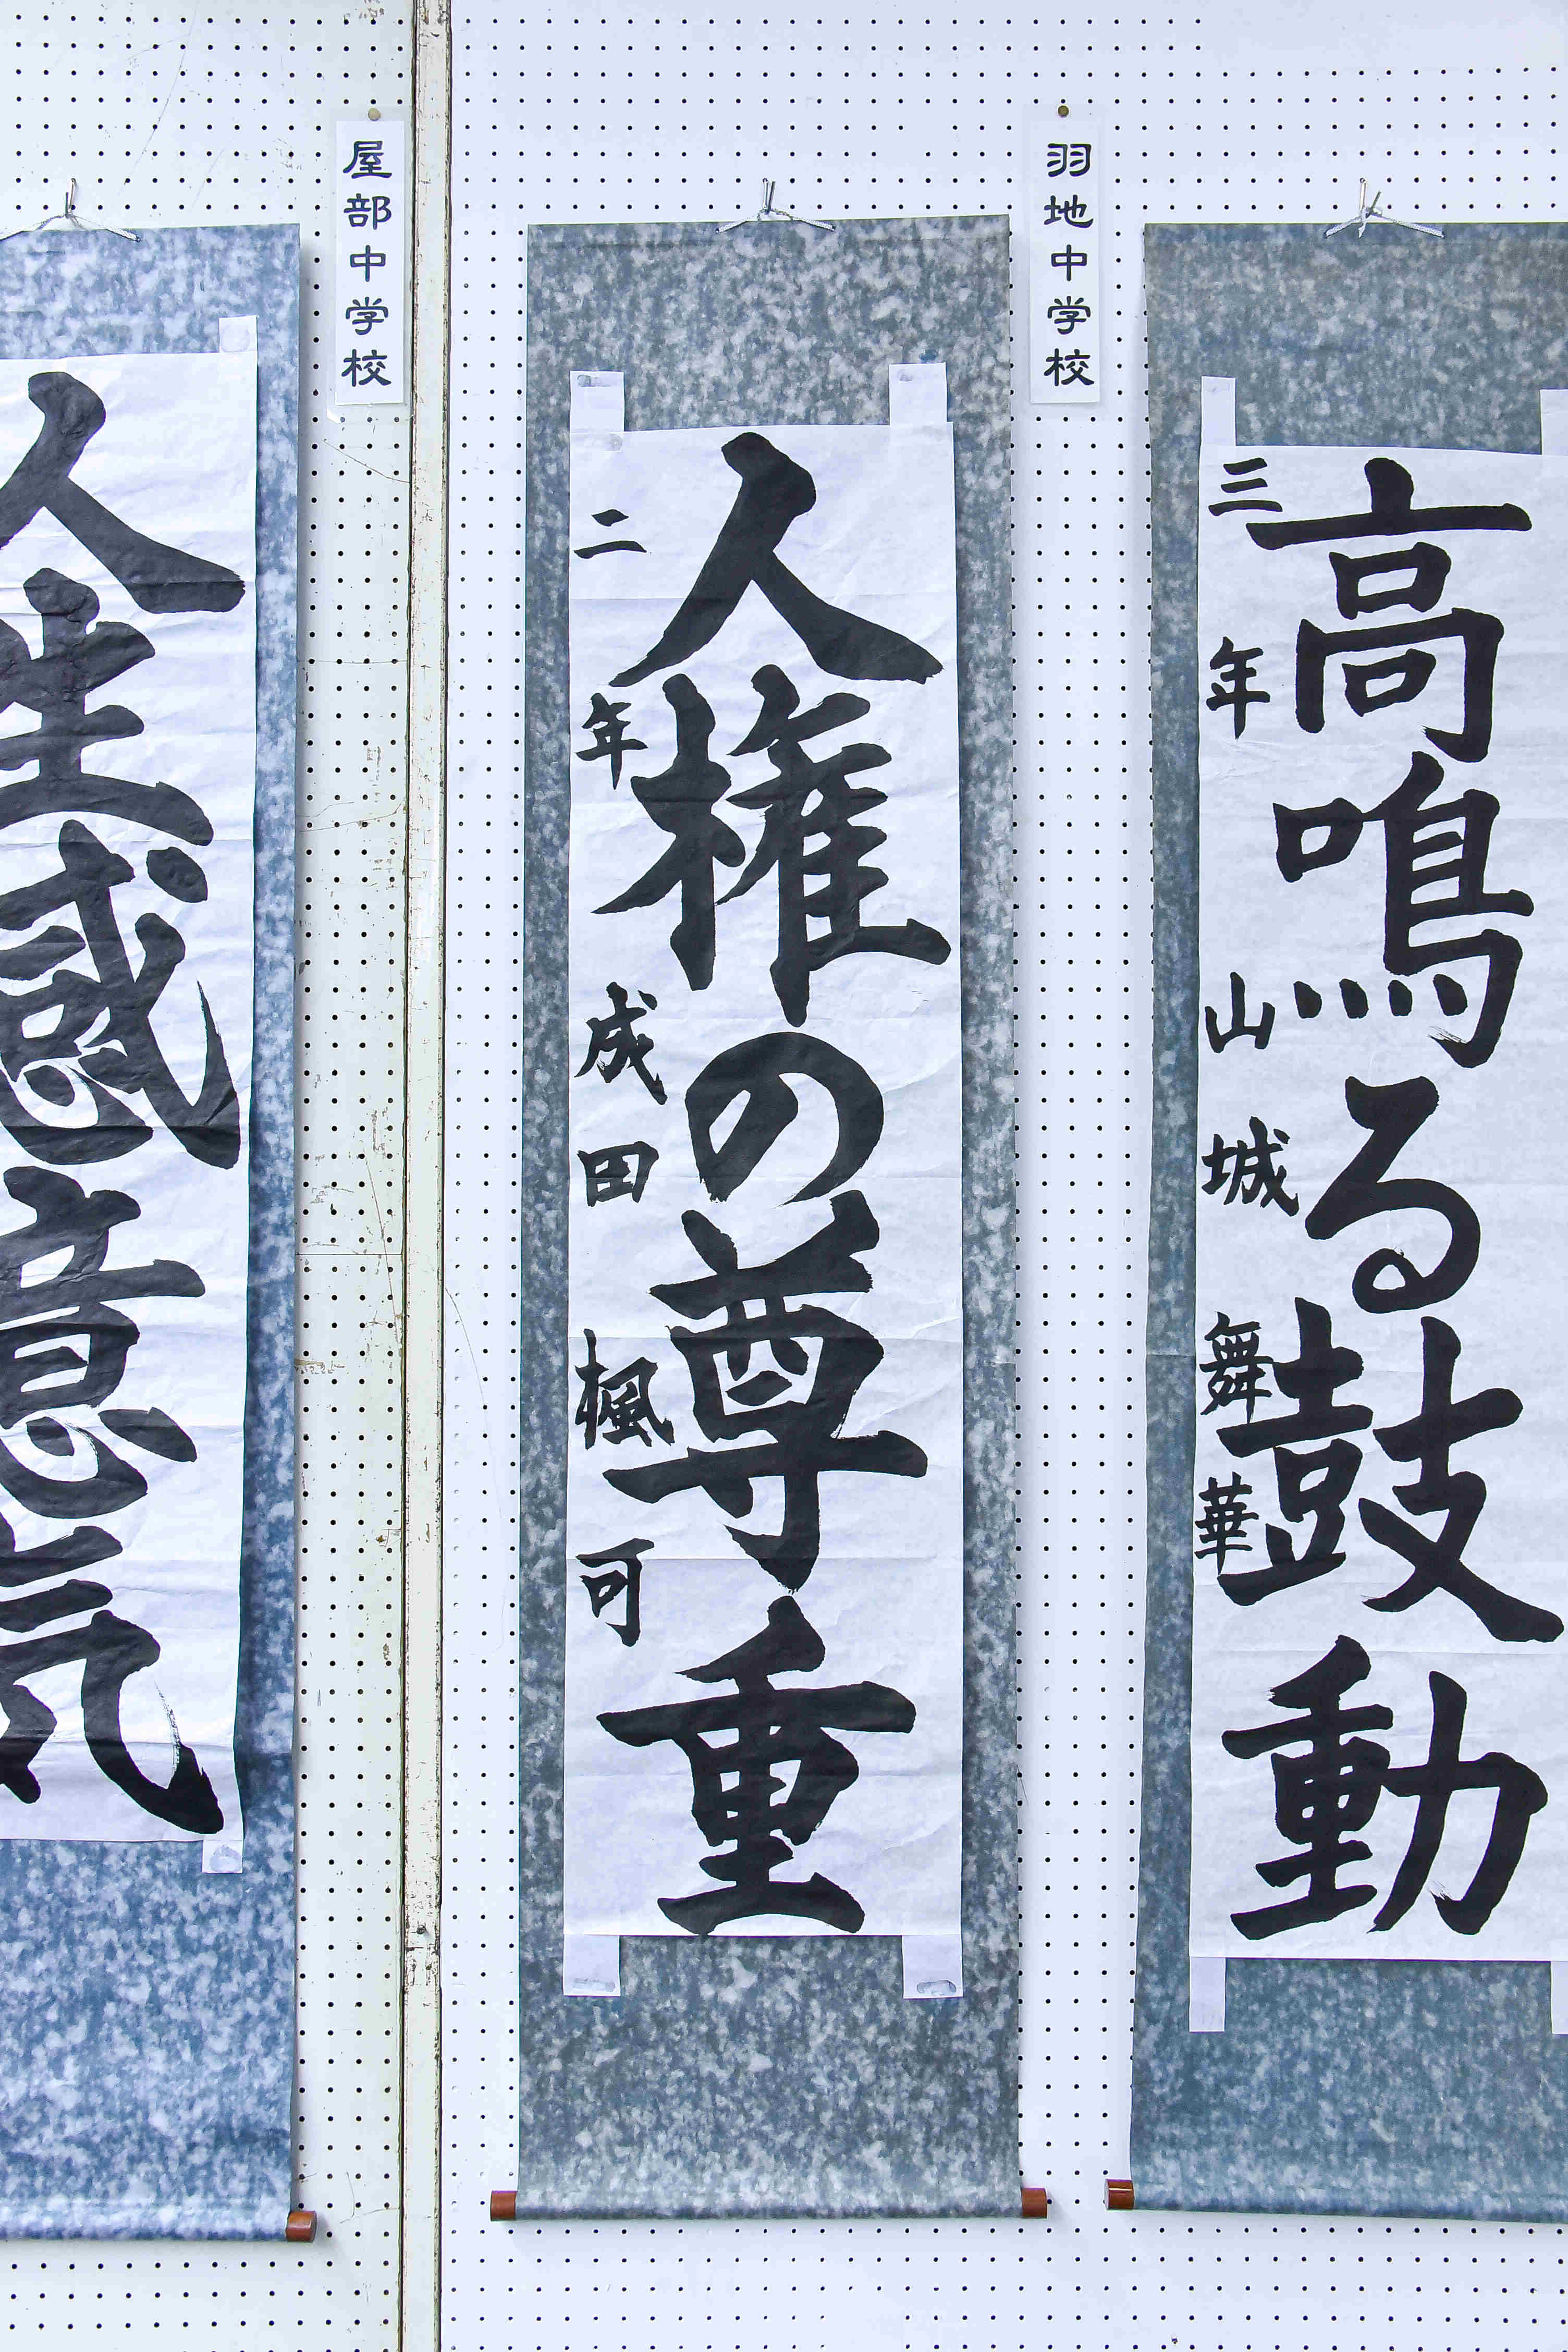 高鳴る鼓動
三年 山城舞華
羽地中学校
人権の尊重
二年 成田楓可
屋部中学校
人生感意気